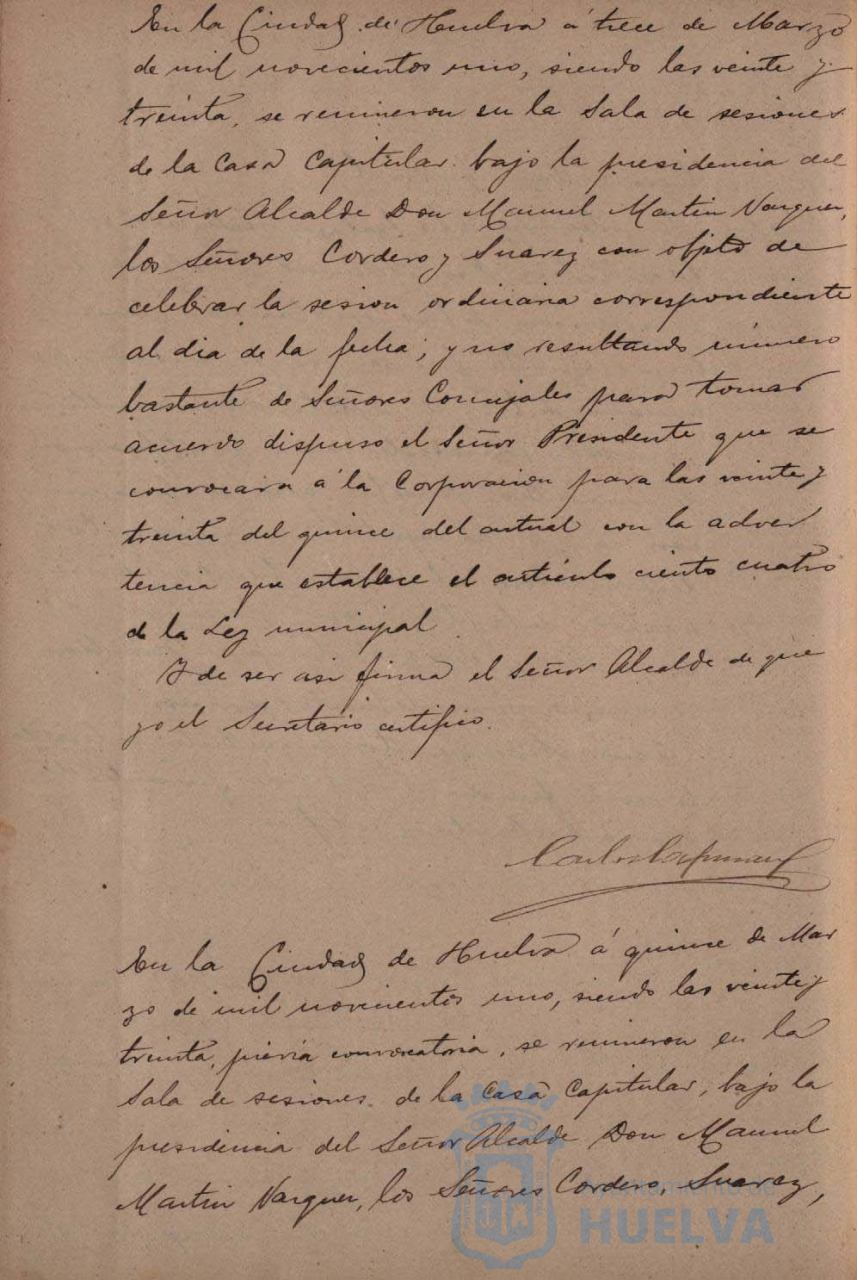 En la Ciudad de Huelva á trece de Marzo
de mil novecientos uno, siendo las veinte y
treinta, se reunieron en la Sala de sesiones
de la Casa Capitular bajo la presidencia del
Señor Alcalde Don Manuel Martin Vazquez,
los Señores Cordero y Suarez con objeto de
celebrar la sesion ordinaria correspondiente
al dia de la fecha; y no resultando número
bastante de Señores Concejales para tomar
acuerdo dispuso el Señor Presidente que se
convocara á la Corporacion para las veinte y
treinta del quince del actual con la adver
tencia que establece el articulo ciento cuatro
de la Ley municipal
Y de ser asi firma el Señor Alcalde de que
yo el Secretario certifico.
En la Ciudad de Huelva á quince de Mar
zo de mil novecientos uno, siendo las veinte y
treinta, previa convocatoria, se reunieron en la
Sala de sesiones de la Casa Capitular, bajo la
presidencia del Señor Alcalde Don Manuel
Martin Vazquez, los Señores Cordero, Suarez,
Ayuntamiento de
HUELVA